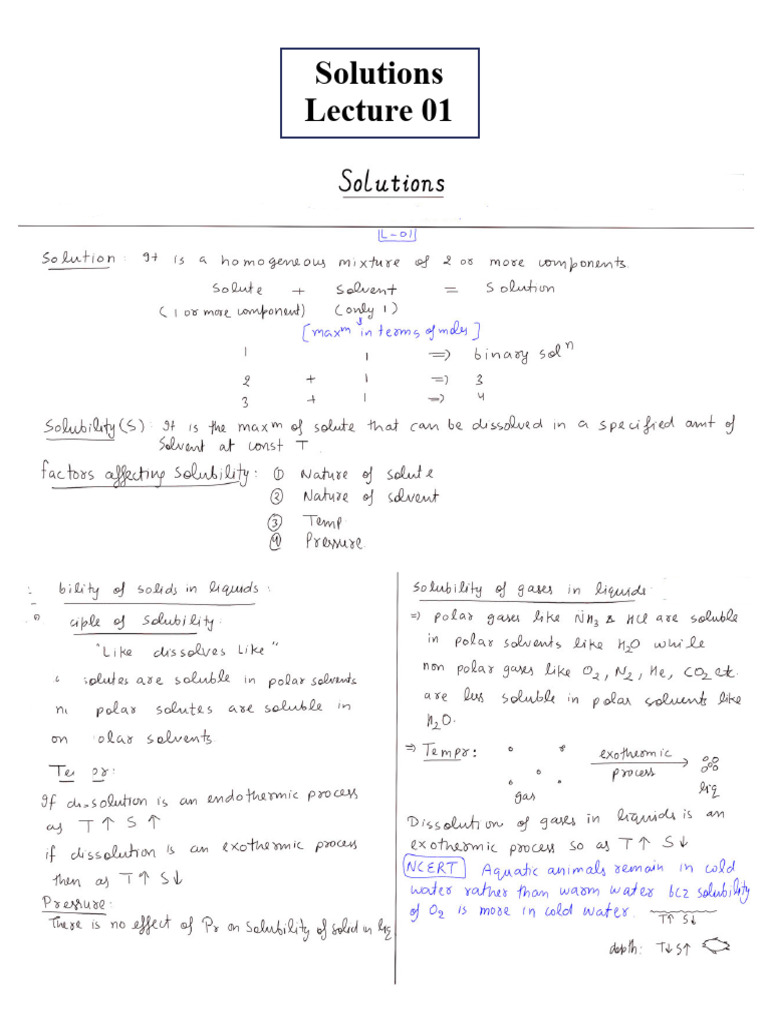 Solutions
Lecture 01
Solutions
L-01
Solution: It is a homogeneous mixture of 2 or more components.
Solute + Solvent = Solution
(1 or more component) (only 1)
[maxᵐ in terms of moles]
1 1 => binary solⁿ
2 + 1 => 3
3 + 1 => 4
Solubility(S): It is the maxᵐ of solute that can be dissolved in a specified amt of
Solvent at const T
factors affecting solubility: ① Nature of solute
② Nature of solvent
③ Temp.
④ Pressure.
bility of solids in liquids:
ciple of Solubility:
"Like dissolves Like"
olutes are soluble in polar solvents
polar solutes are soluble in
on olar solvents
Te or:
If dissolution is an endothermic process
as T↑ S↑
if dissolution is an exothermic process
then as T↑ S↓
Pressure:
There is no effect of Pr on solubility of solid in liq
Solubility of gases in liquids:
=> polar gases like NH₃ & HCl are soluble
in polar solvents like H₂O while
non polar gases like O₂, N₂, He, CO₂ etc.
are less soluble in polar solvents like
H₂O.
=> Tempr: exothermic
process
gas liq
Dissolution of gases in liquids is an
exothermic process so as T↑ S↓
NCERT Aquatic animals remain in cold
water rather than warm water bcz solubility
of O₂ is more in cold water.
T↑ S↓
depth: T↓ S↑